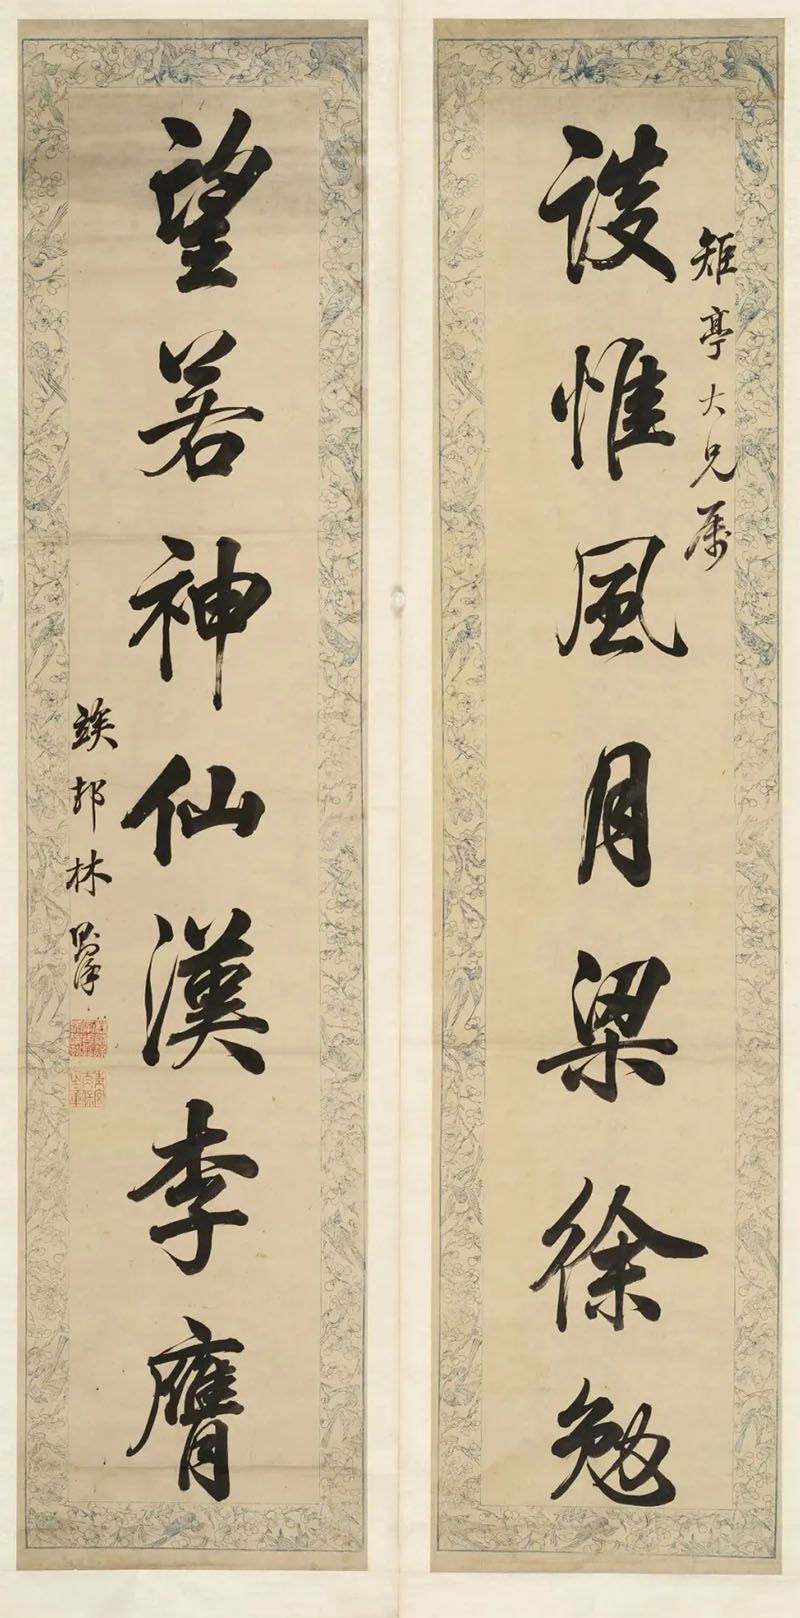 矩亭大兄属
談惟風月梁徐勉
望若神仙漢李膺
竢邨林則徐